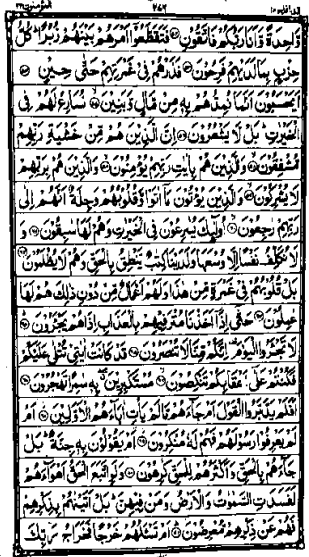 قد افلح ١٨ ٤٤٦ المؤمنون ٢٣
وَّاحِدَةً وَّاَنَا رَبُّكُمْ فَاتَّقُوْنِ فَتَقَطَّعُوْۤا اَمْرَهُمْ بَيْنَهُمْ زُبُرًا كُلُّ
حِزْبٍۭ بِمَا لَدَيْهِمْ فَرِحُوْنَ فَذَرْهُمْ فِيْ غَمْرَتِهِمْ حَتّٰى حِيْنٍ
اَيَحْسَبُوْنَ اَنَّمَا نُمِدُّهُمْ بِهٖ مِنْ مَّالٍ وَّبَنِيْنَ نُسَارِعُ لَهُمْ فِي
الْخَيْرٰتِ بَلْ لَّا يَشْعُرُوْنَ اِنَّ الَّذِيْنَ هُمْ مِّنْ خَشْيَةِ رَبِّهِمْ
مُّشْفِقُوْنَ وَالَّذِيْنَ هُمْ بِاٰيٰتِ رَبِّهِمْ يُؤْمِنُوْنَ وَالَّذِيْنَ هُمْ بِرَبِّهِمْ
لَا يُشْرِكُوْنَ وَالَّذِيْنَ يُؤْتُوْنَ مَاۤ اٰتَوْا وَّقُلُوْبُهُمْ وَجِلَةٌ اَنَّهُمْ اِلٰى
رَبِّهِمْ رٰجِعُوْنَ اُولٰٓئِكَ يُسٰرِعُوْنَ فِي الْخَيْرٰتِ وَهُمْ لَهَا سٰبِقُوْنَ وَ
لَا نُكَلِّفُ نَفْسًا اِلَّا وُسْعَهَا وَلَدَيْنَا كِتٰبٌ يَّنْطِقُ بِالْحَقِّ وَهُمْ لَا يُظْلَمُوْنَ
بَلْ قُلُوْبُهُمْ فِيْ غَمْرَةٍ مِّنْ هٰذَا وَلَهُمْ اَعْمَالٌ مِّنْ دُوْنِ ذٰلِكَ هُمْ لَهَا
عٰمِلُوْنَ حَتّٰۤى اِذَاۤ اَخَذْنَا مُتْرَفِيْهِمْ بِالْعَذَابِ اِذَا هُمْ يَجْـَٔرُوْنَ
لَا تَجْـَٔرُوا الْيَوْمَ اِنَّكُمْ مِّنَّا لَا تُنْصَرُوْنَ قَدْ كَانَتْ اٰيٰتِيْ تُتْلٰى عَلَيْكُمْ
فَكُنْتُمْ عَلٰۤى اَعْقَابِكُمْ تَنْكِصُوْنَ مُسْتَكْبِرِيْنَ بِهٖ سٰمِرًا تَهْجُرُوْنَ
اَفَلَمْ يَدَّبَّرُوا الْقَوْلَ اَمْ جَآءَهُمْ مَّا لَمْ يَاْتِ اٰبَآءَهُمُ الْاَوَّلِيْنَ اَمْ
لَمْ يَعْرِفُوْا رَسُوْلَهُمْ فَهُمْ لَهٗ مُنْكِرُوْنَ اَمْ يَقُوْلُوْنَ بِهٖ جِنَّةٌ بَلْ
جَآءَهُمْ بِالْحَقِّ وَاَكْثَرُهُمْ لِلْحَقِّ كٰرِهُوْنَ وَلَوِ اتَّبَعَ الْحَقُّ اَهْوَآءَهُمْ
لَفَسَدَتِ السَّمٰوٰتُ وَالْاَرْضُ وَمَنْ فِيْهِنَّ بَلْ اَتَيْنٰهُمْ بِذِكْرِهِمْ
فَهُمْ عَنْ ذِكْرِهِمْ مُّعْرِضُوْنَ اَمْ تَسْـَٔلُهُمْ خَرْجًا فَخَرَاجُ رَبِّكَ